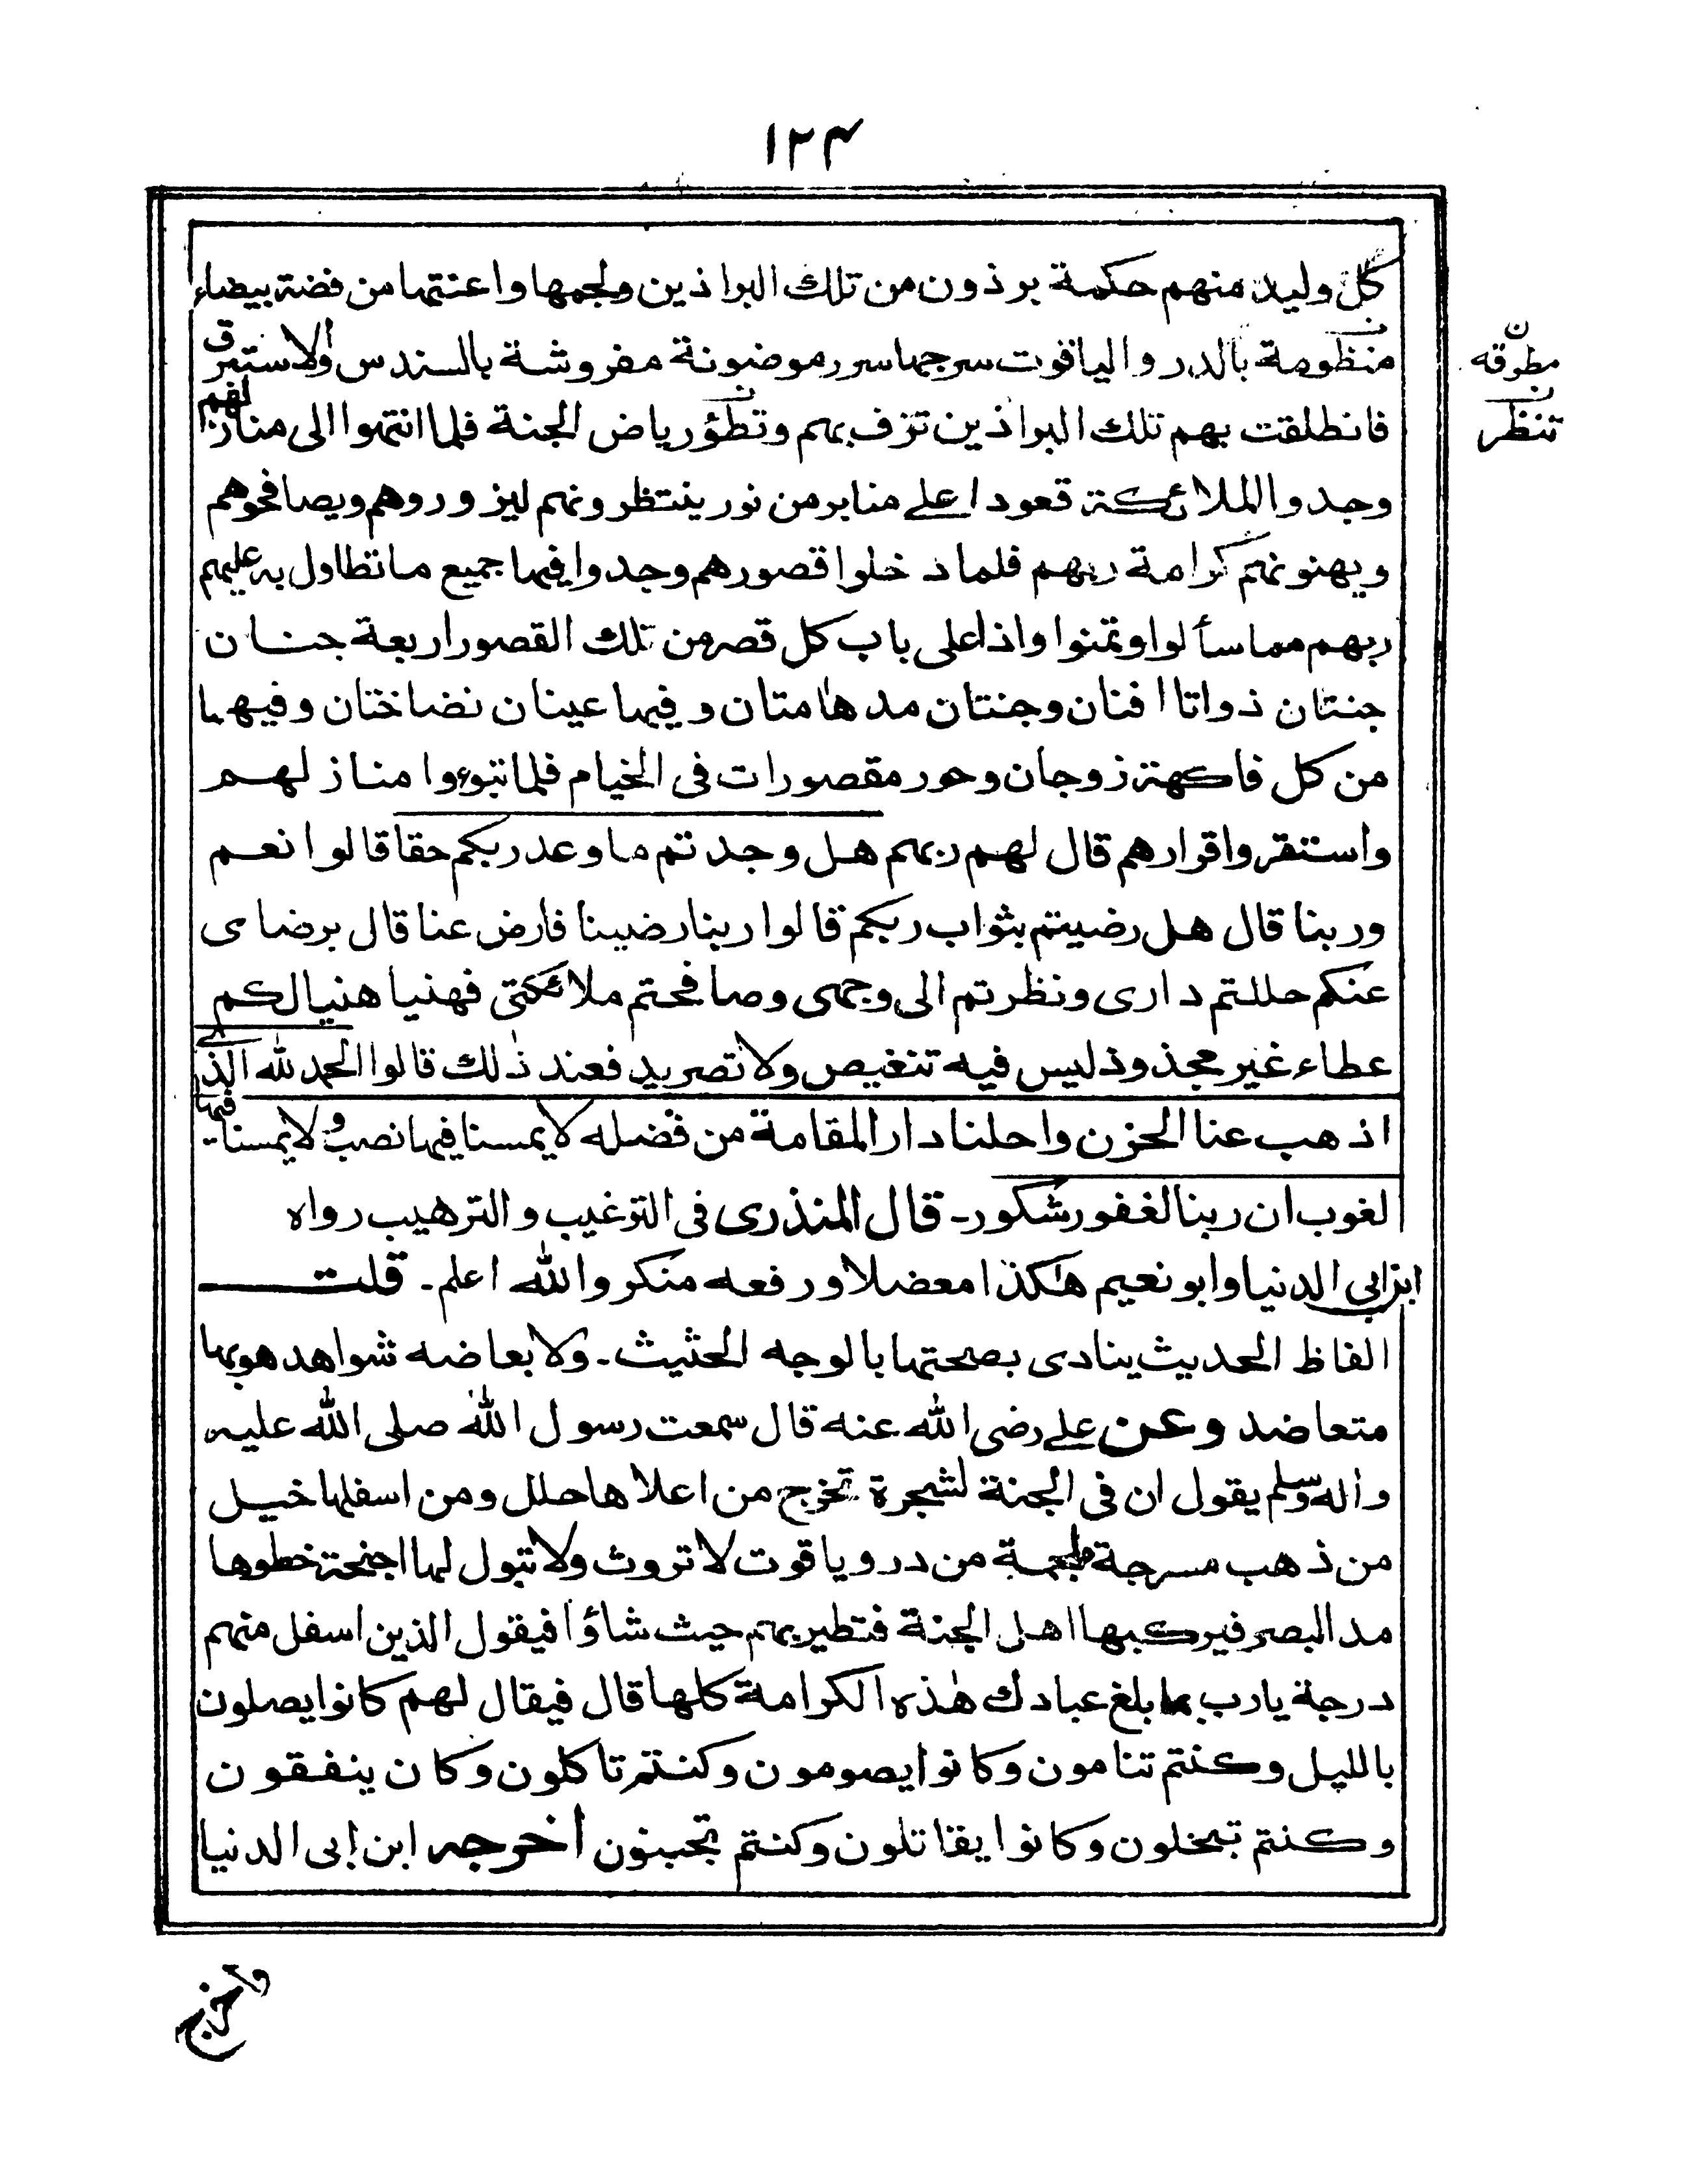 ١٢٤
كل وليد منهم حكمة برذون من تلك البراذين ولجمها واعنتها من فضة بيضاء
منظومة بالدر والياقوت سرجها سرر موضونة مفروشة بالسندس والاستبرق
فانطلقت بهم تلك البراذين تزف بهم وتطؤ رياض الجنة فلما انتهوا الى منازلهم
وجدوا الملائكة قعودا على منابر من نور ينتظرونهم ليزوروهم ويصافحوهم
ويهنونهم كرامة ربهم فلما دخلوا قصورهم وجدوا فيها جميع ما تطاول به عليهم
ربهم مما سألوا وتمنوا واذا على باب كل قصر من تلك القصور اربعة جنان
جنتان ذواتا افنان وجنتان مدهامتان وفيهما عينان نضاختان وفيهما
من كل فاكهة زوجان وحور مقصورات فى الخيام فلما تبوءوا منازلهم
واستقروا قرارهم قال لهم ربهم هل وجدتم ما وعد ربكم حقا قالوا نعم
وربنا قال هل رضيتم بثواب ربكم قالوا ربنا رضينا فارض عنا قال برضاى
عنكم حللتم دارى ونظرتم الى وجهى وصافحتم ملائكتى فهنيا هنيا لكم
عطاء غير مجذوذ ليس فيه تنغيص ولا تصريد فعند ذلك قالوا الحمد لله الذى
اذهب عنا الحزن واحلنا دار المقامة من فضله لا يمسنا فيها نصب ولا يمسنا فيها
لغوب ان ربنا لغفور شكور۔ قال المنذرى فى الترغيب والترهيب رواه
ابن ابي الدنيا وابو نعيم هكذا معضلا ورفعه منكر والله اعلم۔ قلت
الفاظ الحديث ينادى بصحتها بالوجه الحثيث۔ ولا بعاضه شواهد هو بها
متعاضد وعن على رضى الله عنه قال سمعت رسول الله صلى الله عليه
واله وسلم يقول ان فى الجنة لشجرة تخرج من اعلاها حلل ومن اسفلها خيل
من ذهب مسرجة ملجمة من در وياقوت لا تروث ولا تبول لها اجنحة خطوها
مد البصر فيركبها اهل الجنة فتطير بهم حيث شاؤا فيقول الذين اسفل منهم
درجة يارب بما بلغ عبادك هذه الكرامة كلها قال فيقال لهم كانوا يصلون
بالليل وكنتم تنامون وكانوا يصومون وكنتم تاكلون وكان ينفقون
وكنتم تبخلون وكانوا يقاتلون وكنتم تجبنون أخرجه ابن ابى الدنيا
ن
مطرقه
ن
تنظر